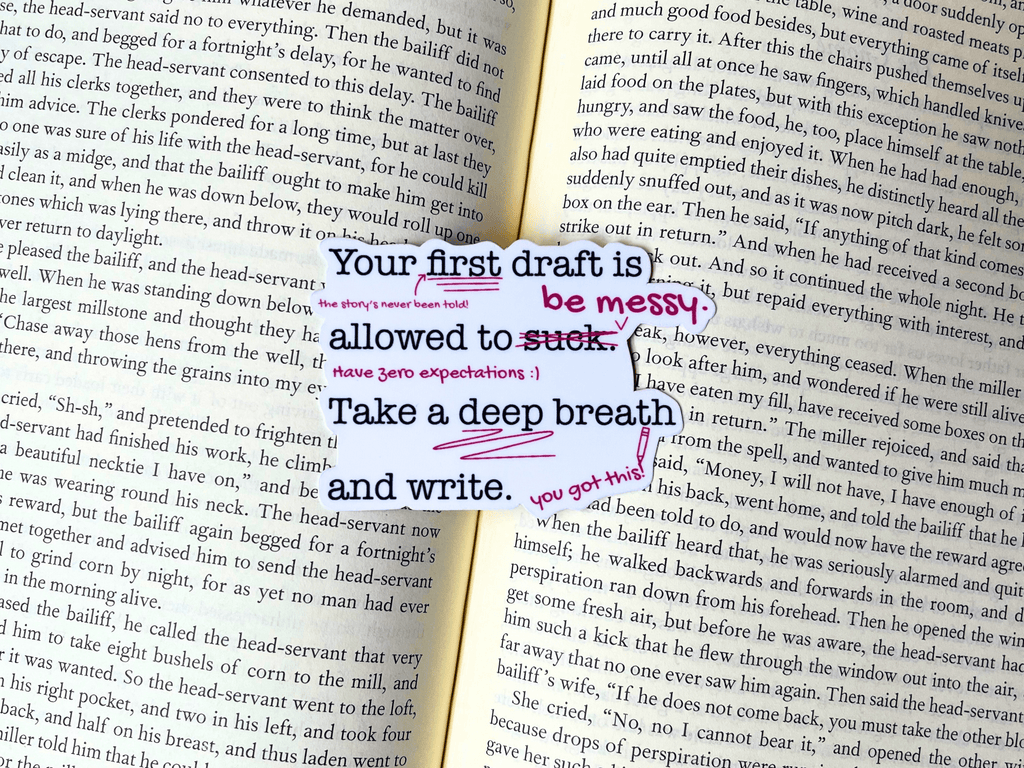 whatever he demanded, but it was
se, the head-servant said no to everything. Then the bailiff did not
hat to do, and begged for a fortnight's delay, for he wanted to find
y of escape. The head-servant consented to this delay. The bailiff
ed all his clerks together, and they were to think the matter over,
him advice. The clerks pondered for a long time, but at last they
o one was sure of his life with the head-servant, for he could kill
asily as a midge, and that the bailiff ought to make him get into
d clean it, and when he was down below, they would roll up one
ones which was lying there, and throw it on his
ver return to daylight.
e pleased the bailiff, and the head-servant
well. When he was standing down below
he largest millstone and thought they ha
"Chase away those hens from the well, th
there, and throwing the grains into my ey
cried, "Sh-sh," and pretended to frighten
d-servant had finished his work, he climb
a beautiful necktie I have on," and be
he was wearing round his neck. The head-servant now
s reward, but the bailiff again begged for a fortnight's
met together and advised him to send the head-servant
l to grind corn by night, for as yet no man had ever
in the morning alive.
ased the bailiff, he called the head-servant that very
d him to take eight bushels of corn to the mill, and
r it was wanted. So the head-servant went to the loft,
n his right pocket, and two in his left, and took four
back, and half on his breast, and thus laden went to
miller told him that he could
Your first draft is
the story's never been told!
be messy.
allowed to suck.
Have zero expectations :)
Take a deep breath
and write.
you got this!
a door suddenly op
the table, wine and roasted meats
and much good food besides, but everything came of itsel
there to carry it. After this the chairs pushed themselves u
came, until all at once he saw fingers, which handled knive
laid food on the plates, but with this exception he saw noth
hungry, and saw the food, he, too, place himself at the table,
who were eating and enjoyed it. When he had had enough,
also had quite emptied their dishes, he distinctly heard all the
suddenly snuffed out, and as it was now pitch dark, he felt som
box on the ear. Then he said, "If anything of that kind comes
strike out in return." And when he had received a second bo
k out. And so it continued the whole night. He t
ing it, but repaid everything with interest, and
eak, however, everything ceased. When the miller
o look after him, and wondered if he were still alive
I have eaten my fill, have received some boxes on th
in return." The miller rejoiced, and said tha
from the spell, and wanted to give him much m
said, "Money, I will not have, I have enough of i
his back, went home, and told the bailiff that he
had been told to do, and would now have the reward agre
When the bailiff heard that, he was seriously alarmed and quit
himself; he walked backwards and forwards in the room, and d
perspiration ran down from his forehead. Then he opened the win
get some fresh air, but before he was aware, the head-servant had
him such a kick that he flew through the window out into the air,
far away that no one ever saw him again. Then said the head-servant
bailiff's wife, "If he does not come back, you must take the other blo
She cried, "No, no I cannot bear it," and opened the other wi
because drops of perspiration were
gave her such